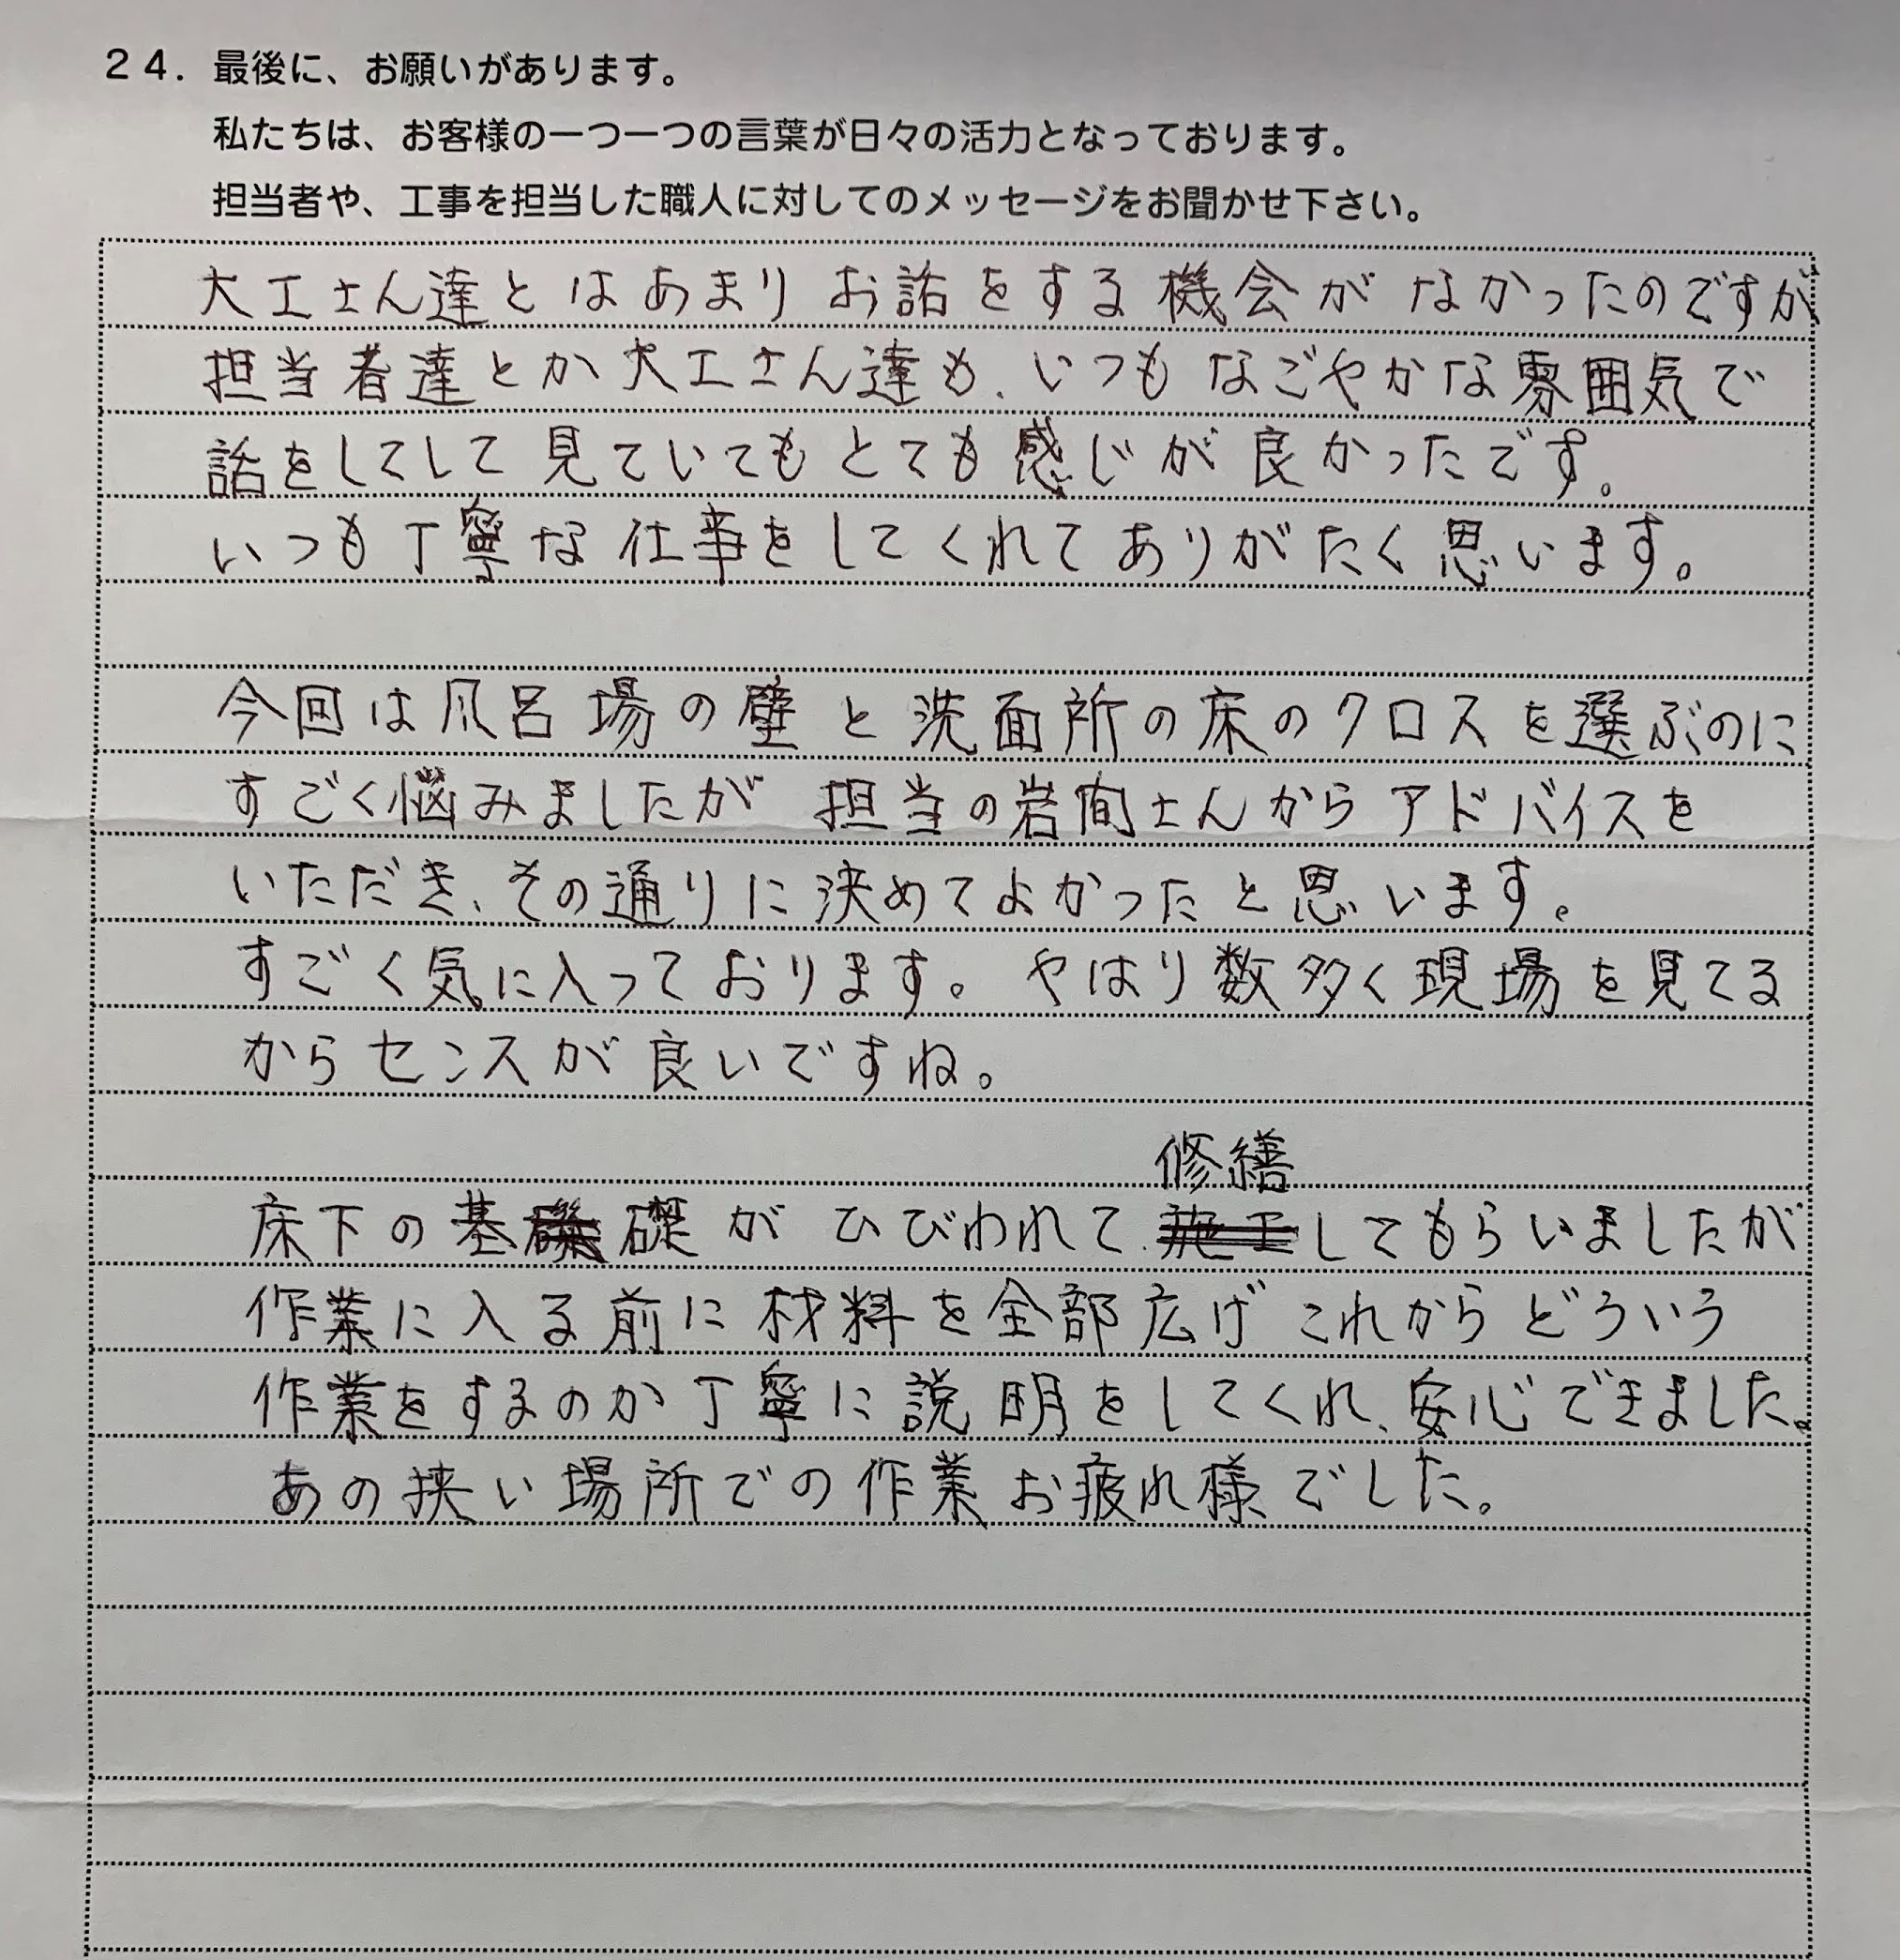 24. 最後に、お願いがあります。
私たちは、お客様の一つ一つの言葉が日々の活力となっております。
担当者や、工事を担当した職人に対してのメッセージをお聞かせ下さい。
大工さん達とはあまりお話をする機会がなかったのですが
担当者達とか大工さん達も、いつもなごやかな雰囲気で
話をしてして見ていてもとても感じが良かったです。
いつも丁寧な仕事をしてくれてありがたく思います。
今回は風呂場の壁と洗面所の床のクロスを選ぶのに
すごく悩みましたが 担当の岩間さんからアドバイスを
いただき、その通りに決めてよかったと思います。
すごく気に入っております。やはり数多く現場を見てる
からセンスが良いですね。
修繕
床下の基礎がひびわれて、施工してもらいましたが
作業に入る前に材料を全部広げこれからどういう
作業をするのか丁寧に説明をしてくれ、安心できました。
あの挟い場所での作業お疲れ様でした。